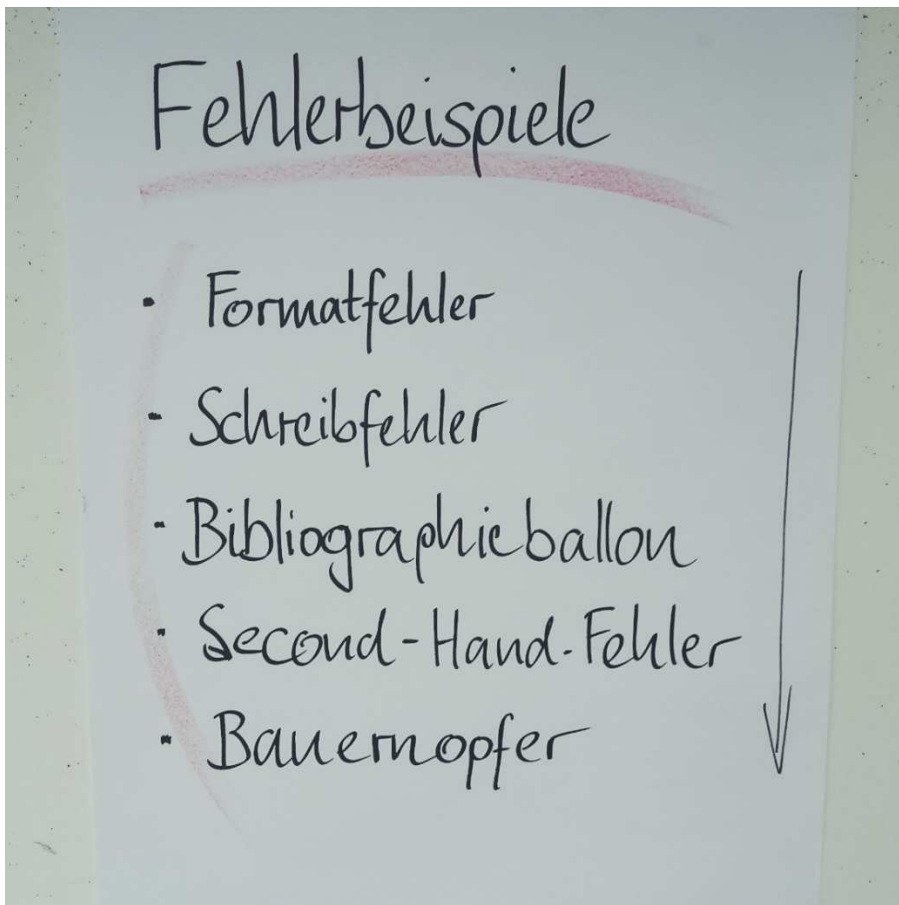 Fehlerbeispiele
· Formatfehler
- Schreibfehler
· Bibliographieballon
· Second-Hand-Fehler
· Bauernopfer